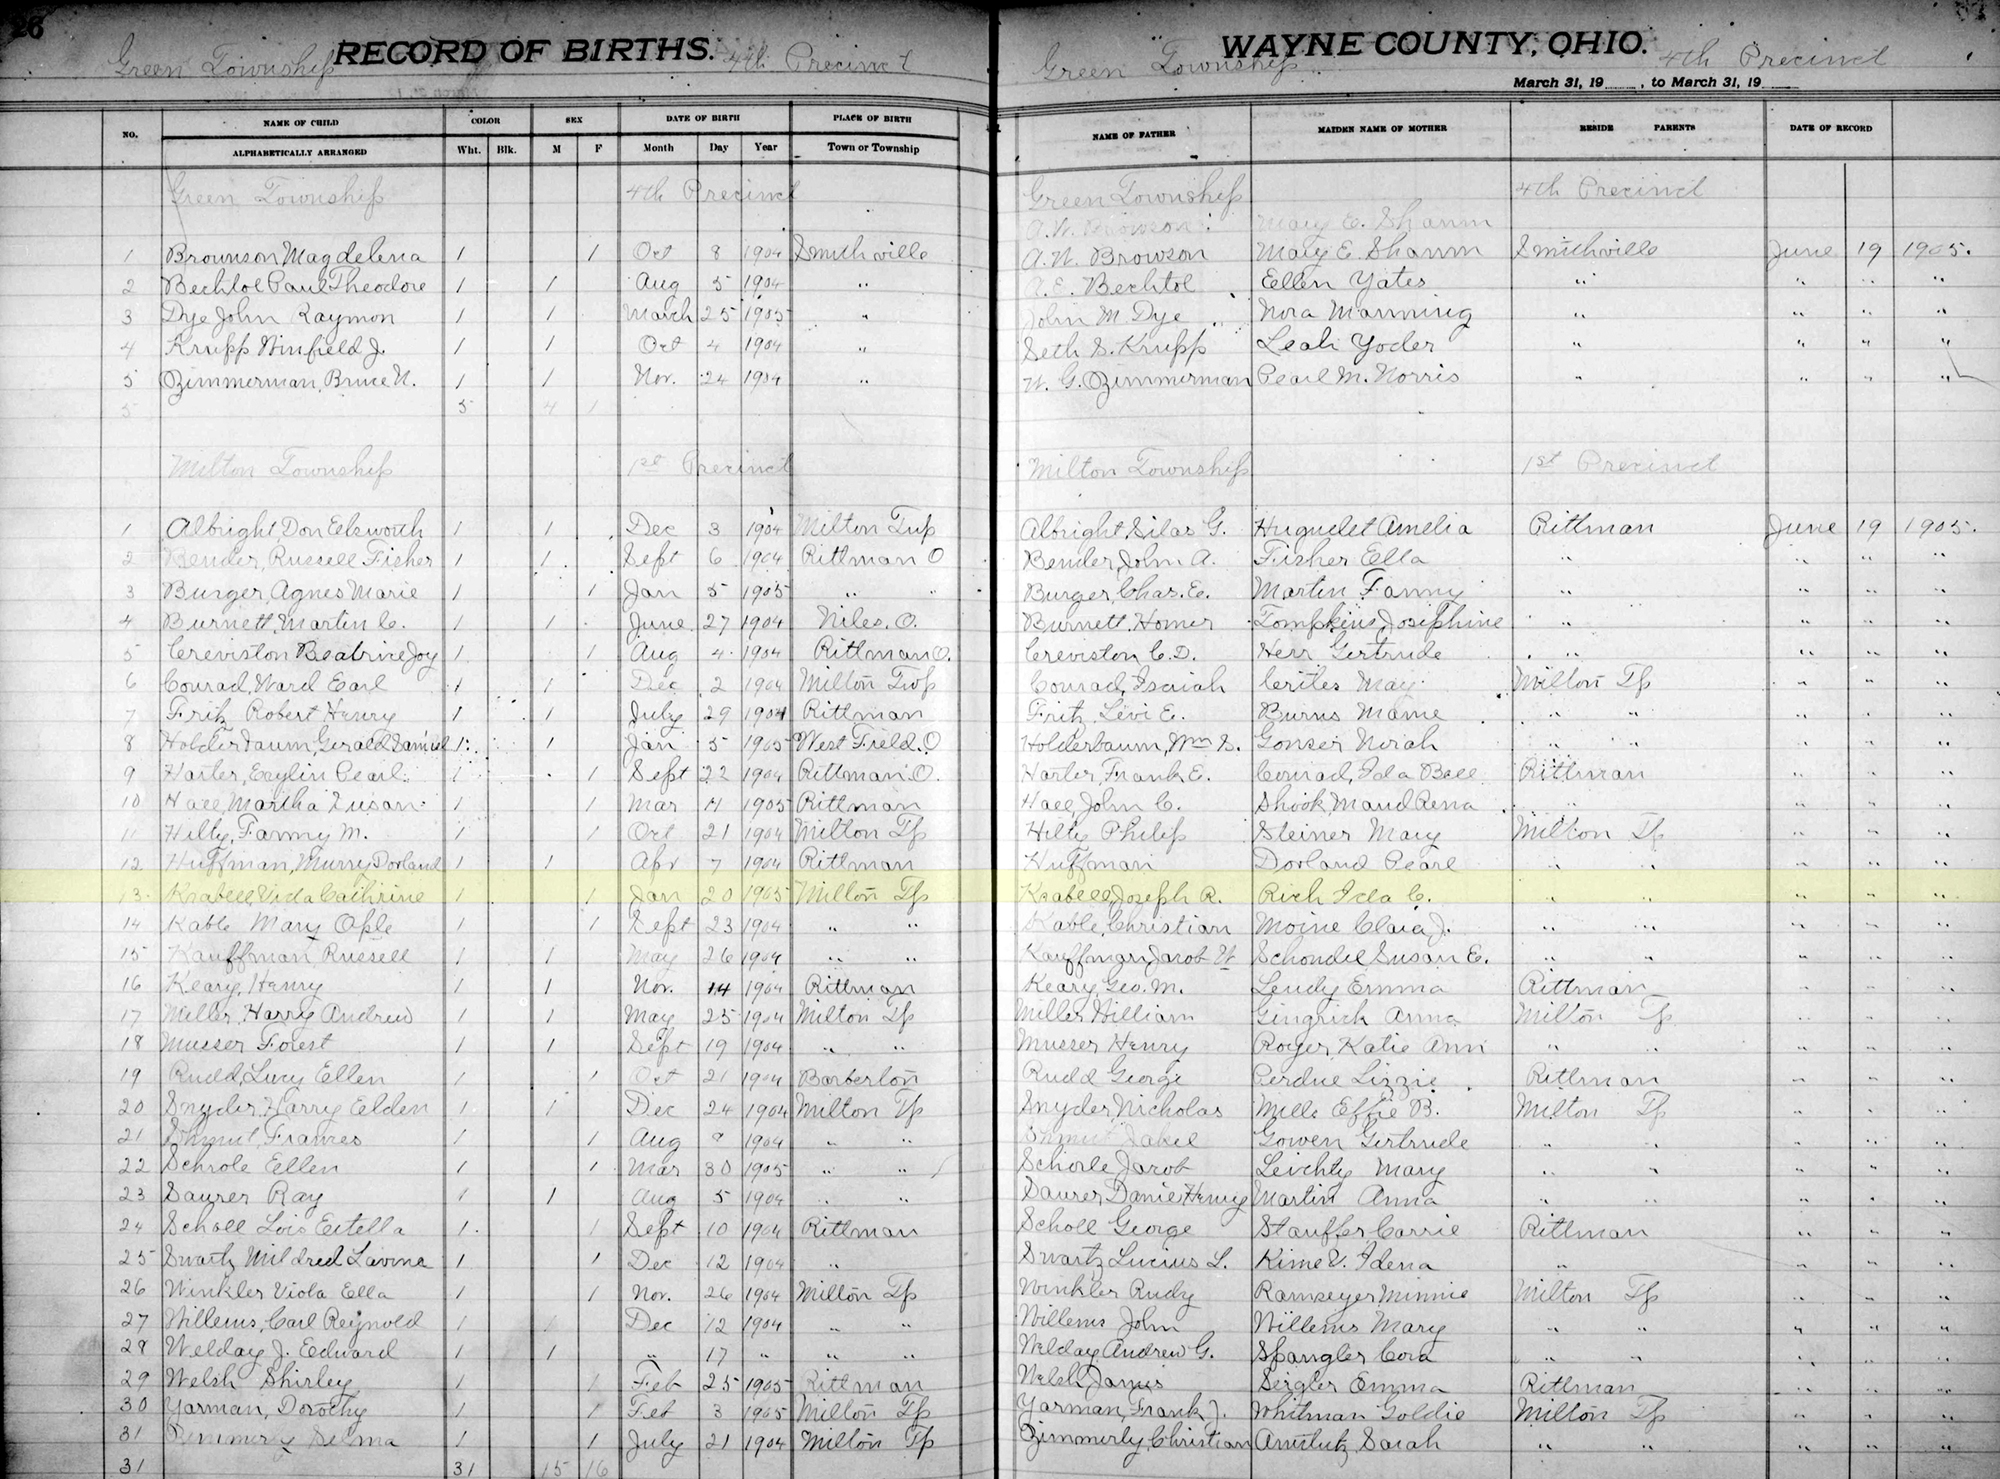 26
RECORD OF BIRTHS.
Green Township 4th Precinct
WAYNE COUNTY, OHIO.
Green Township 4th Precinct
March 31, 19 , to March 31, 19
NO. NAME OF CHILD COLOR SEX DATE OF BIRTH PLACE OF BIRTH NAME OF FATHER MAIDEN NAME OF MOTHER RESIDE PARENTS DATE OF RECORD
ALPHABETICALLY ARRANGED Wht. Blk. M F Month Day Year Town or Township
Green Township 4th Precinct Green Township 4th Precinct
Mary E. Shamm
1 Brownson Magdelena 1 1 Oct 8 1904 Smithville A. W. Browson Mary E. Shamm Smithville June 19 1905.
2 Bechtol Paul Theodore 1 1 Aug 5 1904 " A. E. Bechtol Ellen Yates " " " "
3 Dye John Raymon 1 1 March 25 1905 " John M Dye Nora Manning " " " "
4 Krupp Winfield J. 1 1 Oct 4 1904 " Seth S. Krupp Leah Yoder " " " "
5 Zimmerman, Bruce N. 1 1 Nov. 24 1904 " W. G. Zimmerman Pearl M. Norris " " " "
5 5 4 1
Milton Township 1st Precinct Milton Township 1st Precinct
1 Albright Don Elsworth 1 1 Dec 3 1904 Milton Twp Albright, Silas G. Huguelet Amelia Rittman June 19 1905.
2 Bender, Russell Fisher 1 1 Sept 6 1904 Rittman O Bender, John A. Fisher Ella " " " "
3 Burger, Agnes Marie 1 1 Jan 5 1905 " " Burger, Chas. E. Martin Fanny " " " "
4 Burnett, Martin C. 1 1 June 27 1904 Niles, O. Burnett, Homer Tompkins, Josephine " " " "
5 Creviston Beatrine Joy 1 1 Aug 4 1904 Rittman O. Creviston C. D. Herr Gertrude " " " "
6 Conrad, Ward Earl 1 1 Dec 2 1904 Milton Twp Conrad, Isaiah Crites May Milton Tp " " "
7 Fritz Robert Henry 1 1 July 29 1904 Rittman Fritz, Levi E. Burns Mame " " " " "
8 Holderbaum, Gerald Samuel 1 1 Jan 5 1905 West Field. O Holderbaum, Wm S. Gonser Norah " " " " "
9 Harter, Pearl 1 1 Sept 22 1904 Rittman. O. Harter, Frank E. Conrad, Ida Bell Rittman " " "
10 Hall, Martha Susan 1 1 Mar 1905 Rittman Hall, John C. Shook, Maud Rena " " " "
11 Hilty, Fanny M. 1 1 Oct 21 1904 Milton Tp Hilty Philip Steiner Mary Milton Tp " " "
12 Huffman, Murry Dorland 1 1 Apr 7 1904 Rittman Huffman Dorland Pearl " " " " "
13 Krabill Vida Cathrine 1 1 Jan 20 1905 Milton Tp Krabill, Joseph R. Rich Ida C. " " " " "
14 Kable Mary Ople 1 1 Sept 23 1904 " " Kable, Christian Moine Clara J. " " " " "
15 Kauffman Russell 1 1 May 26 1904 " " Kauffman Jacob W Schondel Susan E. " " " " "
16 Keary, Henry 1 1 Nov. 14 1904 Rittman Keary, Geo. M. Lendy Emma Rittman " " "
17 Miller, Harry Andrew 1 1 May 25 1904 Milton Tp Miller William Gingrich Anna Milton Tp " " "
18 Musser Forest 1 1 Sept 19 1904 " " Musser Henry Royer Katie Ann " " " " "
19 Rudd, Lucy Ellen 1 1 Oct 21 1904 Barberton Rudd George Perdue Lizzie Rittman " " "
20 Snyder, Harry Elden 1 1 Dec 24 1904 Milton Tp Snyder Nicholas Mills Effie B. Milton Tp " " "
21 Frances 1 1 Aug 9 1904 " " Gowen Gertrude " " " " "
22 Schrole Ellen 1 1 Mar 30 1905 " " Jacob Leichty Mary " " " " "
23 Saurer Ray 1 1 Aug 5 1904 " " Saurer, Daniel Henry Martin Anna " " " " "
24 Scholl Lois Estella 1 1 Sept 10 1904 Rittman Scholl George Stauffer Carrie Rittman " " "
25 Swartz Mildred Lavina 1 1 Dec 12 1904 " Swartz Lucius L. Kime V. Idena " " " "
26 Winkler Viola Ella 1 1 Nov. 26 1904 Milton Tp Winkler Rudy Ramseyer Minnie Milton Tp " " "
27 Willems, Carl Reignold 1 1 Dec 12 1904 " " Willems John Willems Mary " " " " "
28 Welday J. Edward 1 1 " 17 " " " Welday Andrew G. Spangler Cora " " " " "
29 Welsh Shirley 1 1 Feb 25 1905 Rittman Welsh James Seigler Emma Rittman " " "
30 Yarman, Dorothy 1 1 Feb 3 1905 Milton Tp Yarman, Frank J. Whitman Goldie Milton Tp " " "
31 Selma 1 1 July 21 1904 Milton Tp Zimmerly, Christian Amstutz, Sarah " " " " "
31 31 15 16